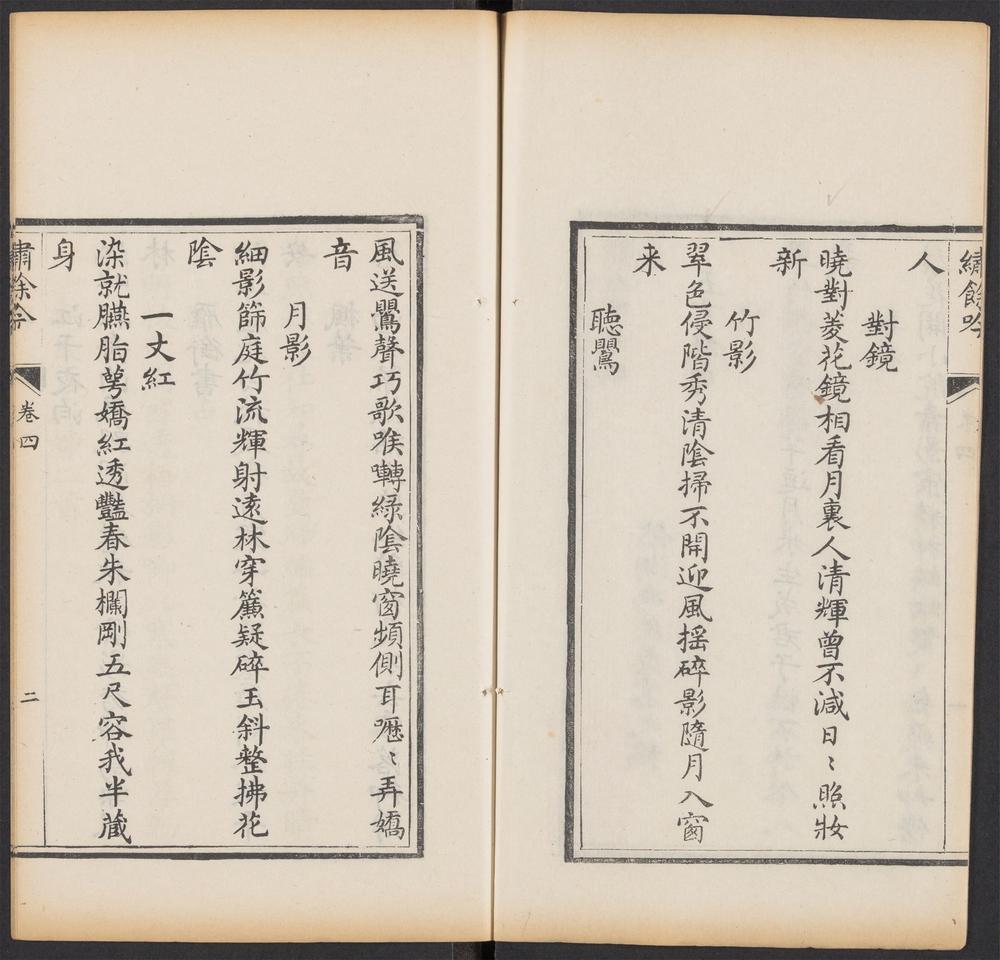 繡餘吟
人
對鏡
曉對菱花鏡相看月裏人清輝曾不減日〻照妝
新
竹影
翠色侵階秀清陰掃不開迎風摇碎影隨月入窗
来
聽鸎
風送鸎聲巧歌喉囀綠陰曉窗頻側耳嚦〻弄嬌
音
月影
細影篩庭竹流輝射遠林穿簾疑碎玉斜整拂花
陰
一丈紅
染就臙脂萼嬌紅透豔春朱欄剛五尺容我半藏
身
繡餘吟
卷四
二